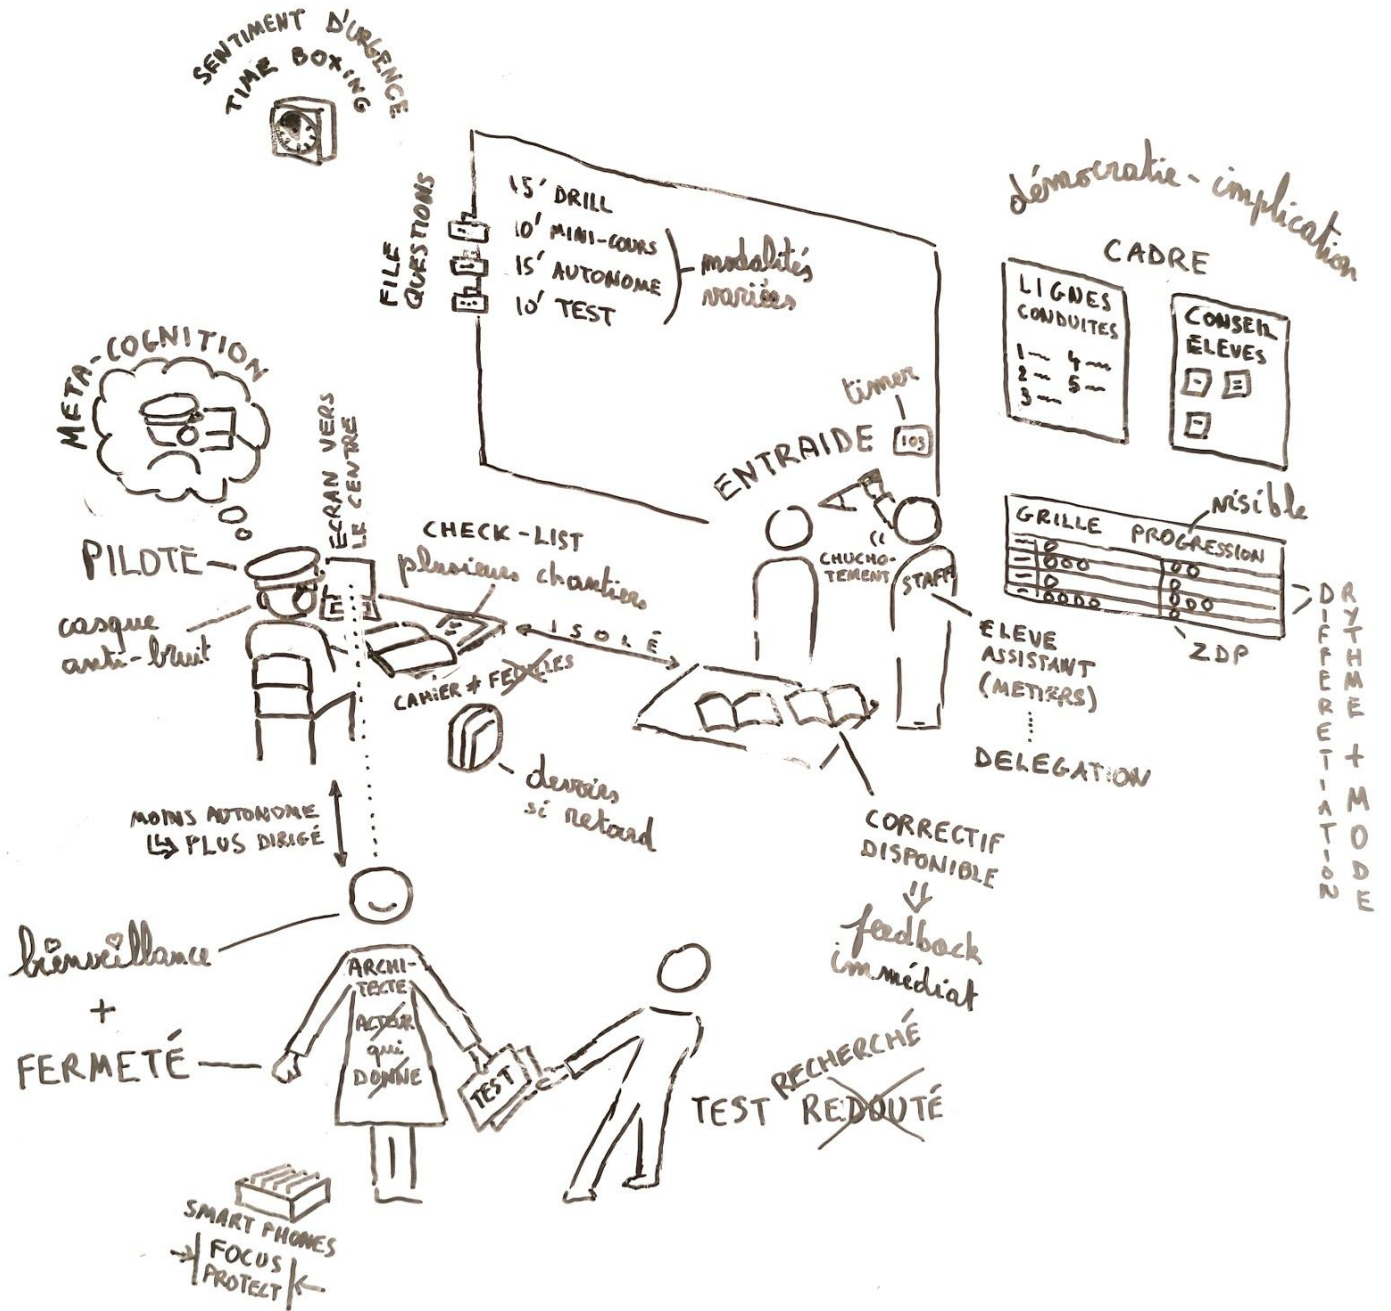 SENTIMENT D'URGENCE
TIME BOXING
FILE
QUESTIONS
15' DRILL
10' MINI-COURS
15' AUTONOME
10' TEST
modalités
variées
démocratie - implication
CADRE
LIGNES
CONDUITES
1 4
2 5
3
CONSEIL
ÉLEVES
META-COGNITION
ÉCRAN VERS
LE CENTRE
PILOTE
casque
anti-bruit
CHECK-LIST
plusieurs chantiers
ISOLÉ
CAHIER ≠ FEUILLES
devoirs
si retard
timer
103
ENTRAIDE
CHUCHO-
TEMENT
STAFF
ELEVE
ASSISTANT
(METIERS)
DELEGATION
visible
GRILLE PROGRESSION
ZDP
DIFFERETIATION
RYTHME + MODE
MOINS AUTONOME
↳ PLUS DIRIGÉ
CORRECTIF
DISPONIBLE
⇓
feedback
immédiat
bienveillance
+
FERMETÉ
ARCHI-
TECTE
ACTEUR
qui
DONNE
TEST
RECHERCHÉ
TEST REDOUTÉ
SMART PHONES
FOCUS
PROTECT